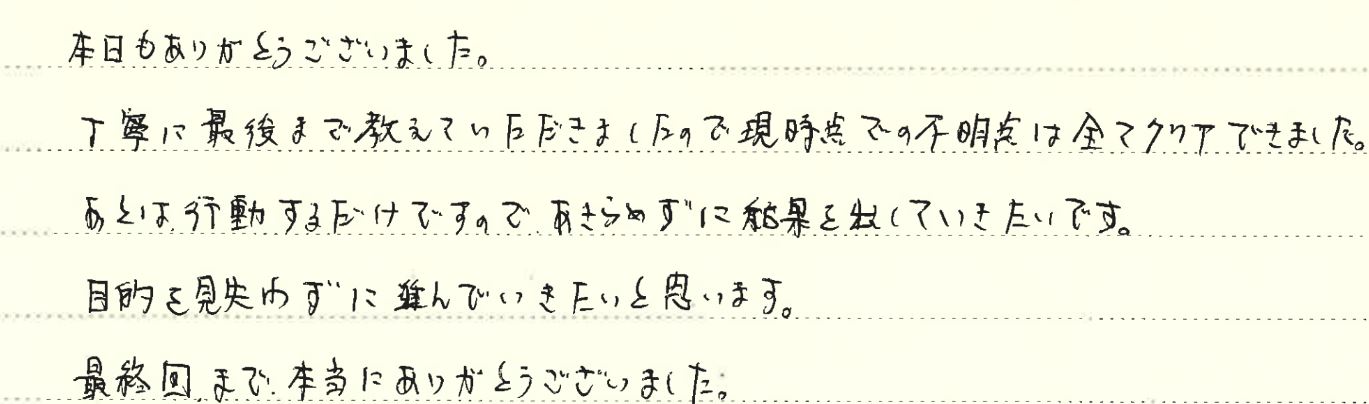 本日もありがとうございました。
丁寧に最後まで教えていただきましたので現時点での不明点は全てクリアできました。
あとは行動するだけですので、あきらめずに結果を出していきたいです。
目的を見失わずに進んでいきたいと思います。
最終回まで、本当にありがとうございました。